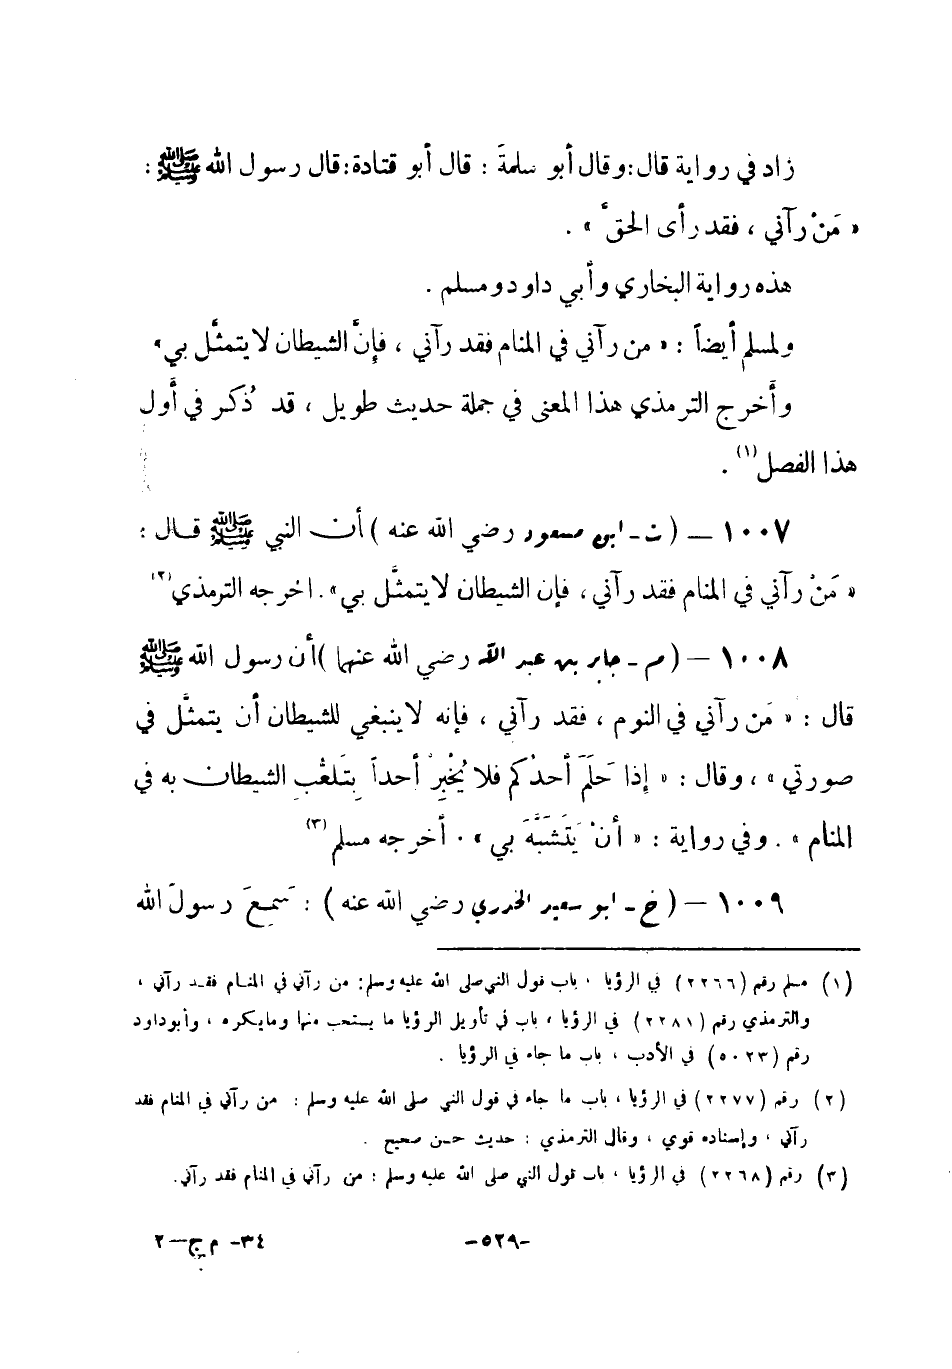 زاد في رواية قال: وقال أبو سلمةَ : قال أبو قتادة: قال رسول الله ﷺ :
« مَنْ رآني ، فقد رأى الحقَّ » .
هذه رواية البخاري وأبي داود ومسلم .
ولمسلم أيضاً : « من رآني في المنام فقد رآني ، فإِنَّ الشيطان لا يتمثَّل بي »
وأَخرج الترمذي هذا المعنى في جملة حديث طويل ، قد ذُكر في أَول
هذا الفصل (١) .
١٠٠٧ – ( ت - ابن مسعود رضي الله عنه ) أن النبي ﷺ قال :
« مَنْ رآني في المنام فقد رآني ، فإن الشيطان لا يتمثَّل بي » . اخرجه الترمذي (٢)
١٠٠٨ – ( م - جابر بن عبد الله رضي الله عنهما ) أن رسول الله ﷺ
قال : « مَن رآني في النوم ، فقد رآني ، فإنه لا ينبغي للشيطان أن يتمثَّل في
صورتي » ، وقال : « إِذا حَلَمَ أَحدُكم فلا يُخْبِرْ أحداً بِتَلَعُّبِ الشيطان به في
المنام » . وفي رواية : « أنْ يَتَشَبَّهَ بي » . أخرجه مسلم (٣)
١٠٠٩ – ( خ - ابو سعيد الخدري رضي الله عنه ) : سَمِعَ رسولَ الله
(١) مسلم رقم (٢٢٦٦) في الرؤيا ، باب قول النبي صلى الله عليه وسلم : من رآني في المنام فقد رآني ،
والترمذي رقم (٢٢٨١) في الرؤيا ، باب في تأويل الرؤيا ما يستحب منها وما يكره ، وأبو داود
رقم (٥٠٢٣) في الأدب ، باب ما جاء في الرؤيا .
(٢) رقم (٢٢٧٧) في الرؤيا ، باب ما جاء في قول النبي صلى الله عليه وسلم : من رآني في المنام فقد
رآني ، وإسناده قوي ، وقال الترمذي : حديث حسن صحيح .
(٣) رقم (٢٢٦٨) في الرؤيا ، باب قول النبي صلى الله عليه وسلم : من رآني في المنام فقد رآني .
-٥٢٩-
٣٤- م ج-٢